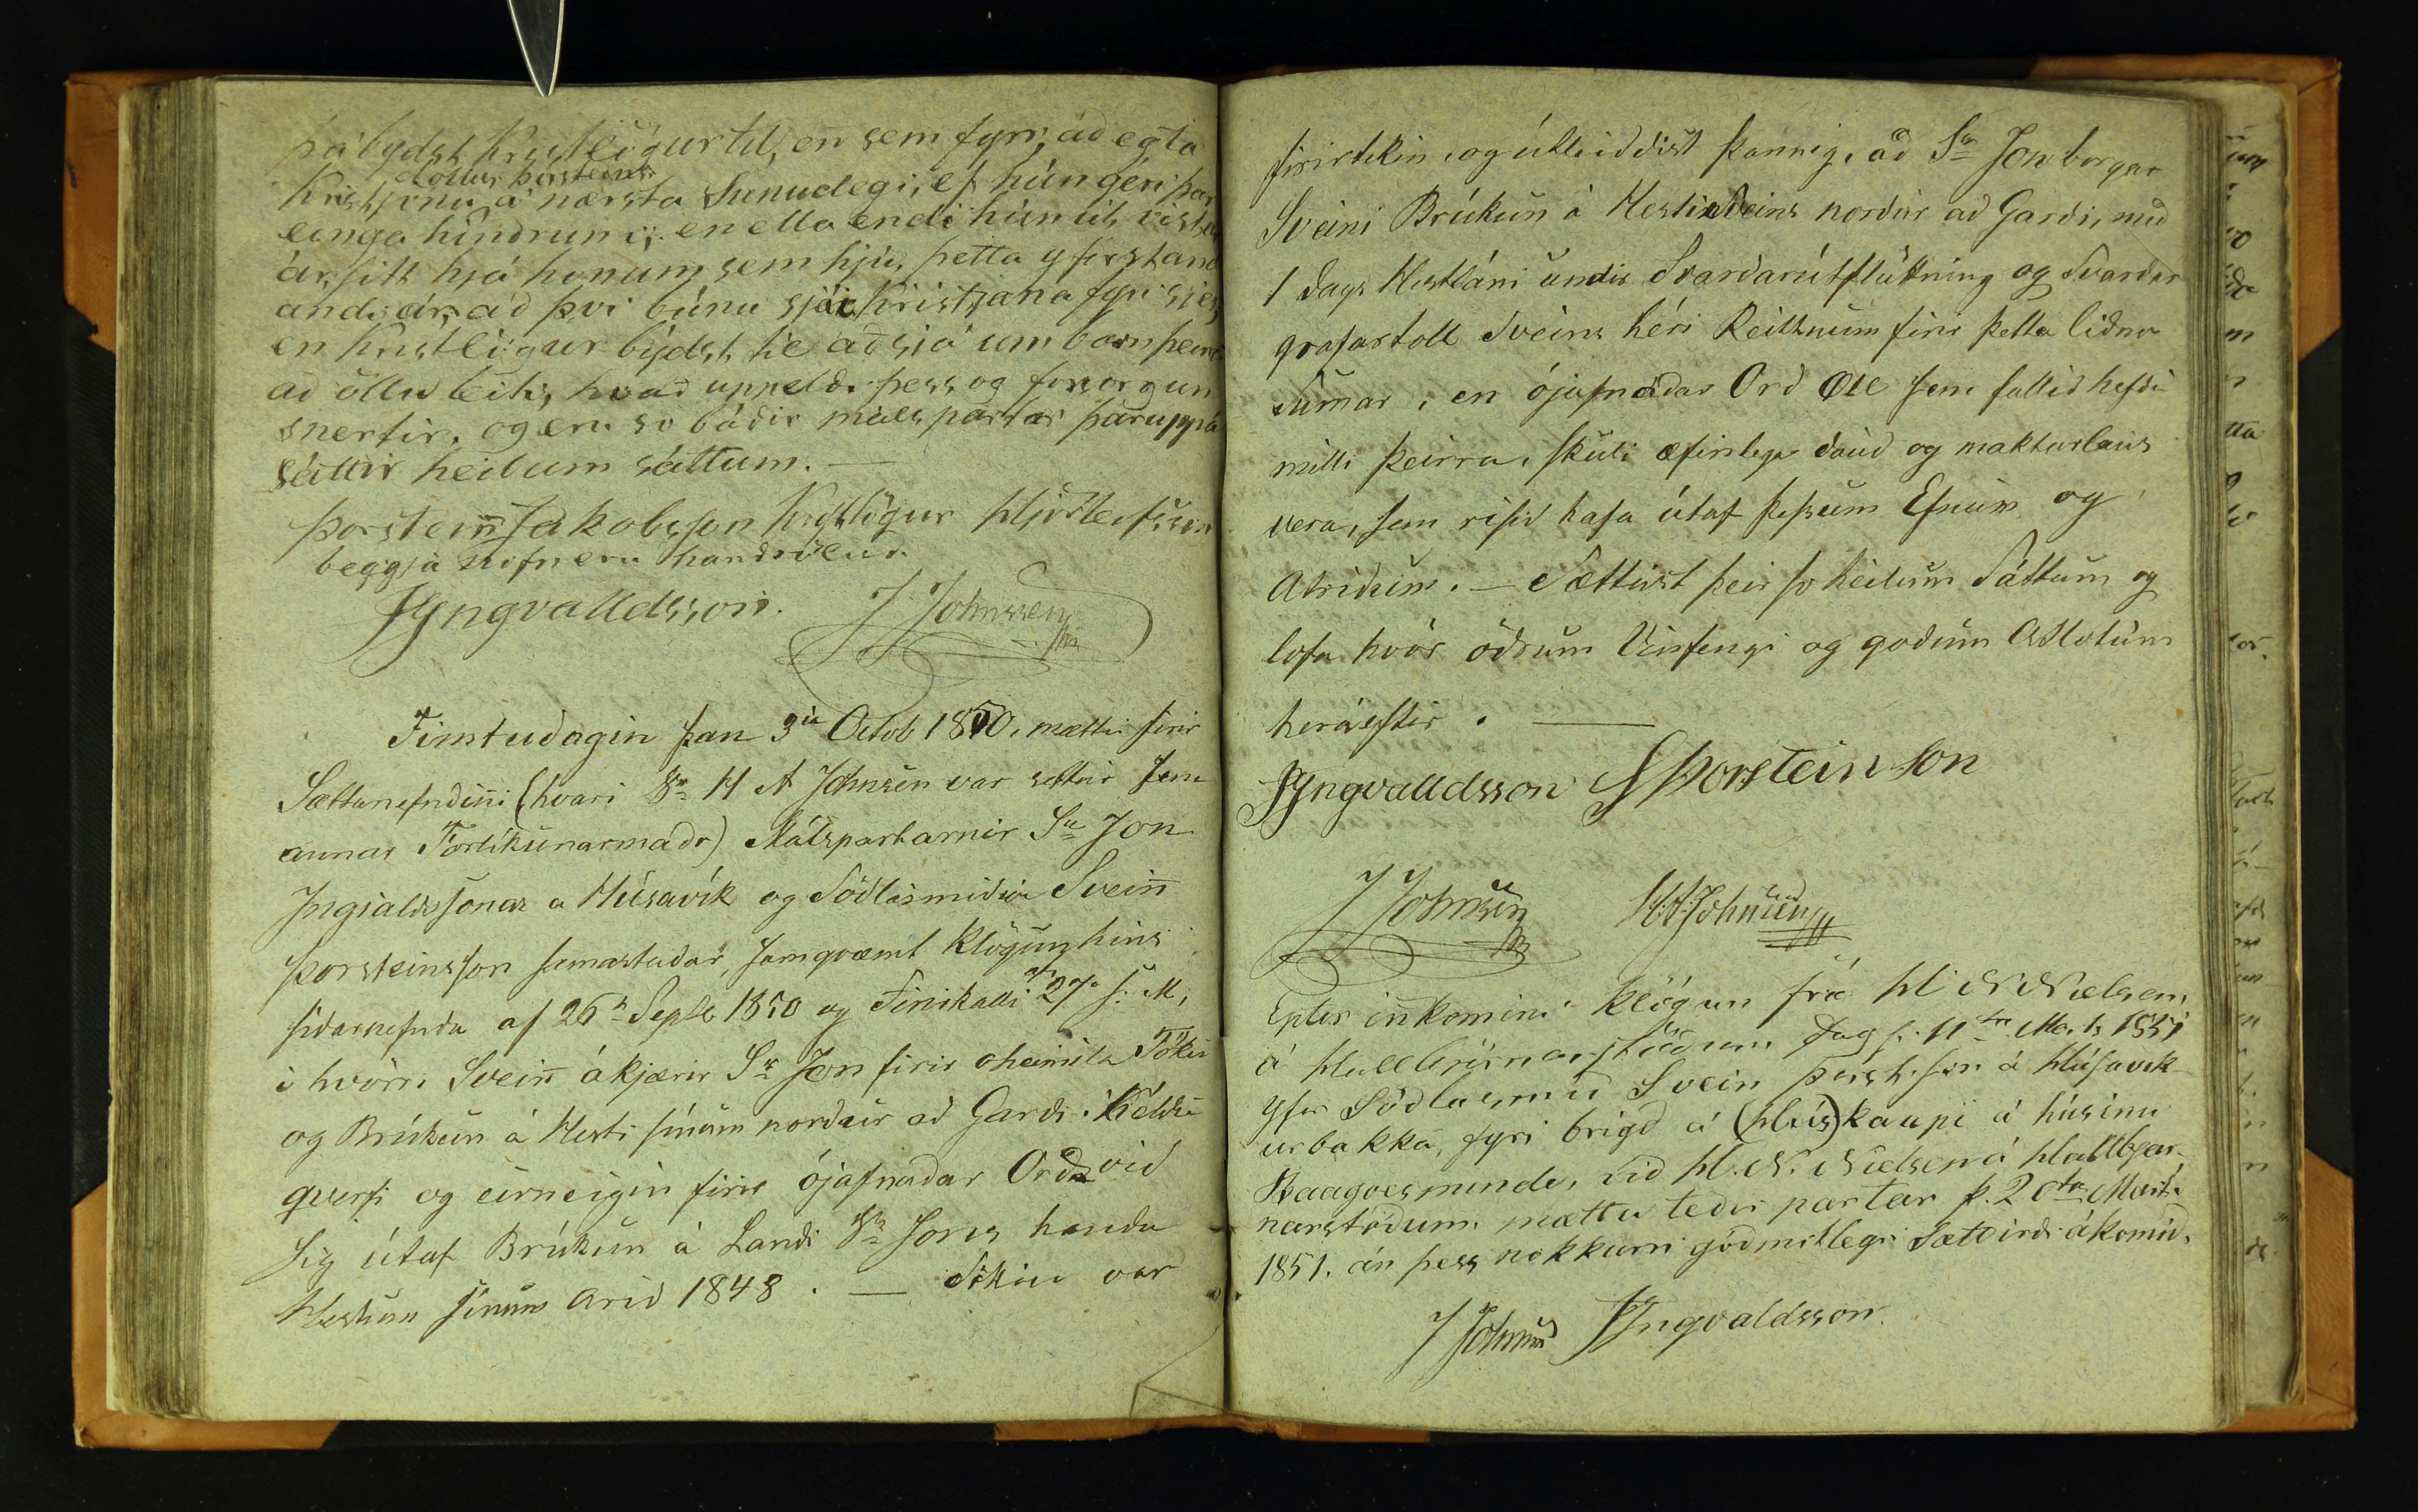 þá býdst Kristlögur til, en sem fyrr, að egta
dóttur Þorsteins
Kristjönu á nærsta Sunudegi, ef hún géri þar
eínga hindrun í; en ella endi hún út vistar
ár sitt hjá honum sem hjú, þetta yfirstand
andi ár, að því búnu sjái Kristjana fyri sjer,
en Kristlögur býdst til að sjá um barn þeirra
að öllu leiti, hvað uppeldi þess og forsorgun
snertir, og eru so báðir málspartar þaruppá
sáttir heilum sáttum. —
Þorsteinn Jakobsson Kristlögur Hjörleifsson
beggja nöfn eru handsöluð.
JYngvalldsson. J Johnssen
Fimtudagin þan 3ia Octob 1850, mættu firir
Sættanefndinni (hvari Sr H A Johnsen var settur sem
annar Forlíkunarmaðr) Málspartarnir Sra Jon
Ingjaldssonar a Húsavík og Söðlasmiður Sveinn
Þorsteinsson samastaðar, samqvæmt klögun hins
síðarnefnda af 26a Septb 1850 og Firikalli af 27. s. M,
i hvörri Sveinn ákjærir Sr Jon firir oheimila Töku
og Brúkun á Hesti sínum norður að Garði i Keldu
qverfi og eirneigin firir ójafnaðar Orð við
sig útaf Brúkun á Landi Sra Jons handa
Hestum sínum árið 1848. — Sökin var
firirtekin, og útleiddist þannig, að Sra Jon borgar
Sveini Brúkun á Hesti Sveins norður að Garði, með
1 dags Hestláni undir Svarðarútflutning og Svarðar
grafartoll Sveins héri Reitnum firir þetta liðna
Sumar, en ójafnaðar Orð öll sem fallið hefðu
milli þeirra, skuli æfinlega dauð og maktarlaus
vera, sem risið hafa útaf þessum Efnum og
Atriðum. — Sættust þeir so heilum Sáttum og
lofa hvör öðrum Vinfengi og goðum Atlotum
heráeftir. —
JYngvalldsson SÞorsteinson
J Johnsen H.A. Johnsen
Epter innkomini klögun frá H N Nielsen,
á Hallbjarnarstöðum dags. 11ta Marts 1851
yfir Söðlasmið Svein Þorst.son á Húsavík
urbakka, fyri brigð á (Hús)kaupi á húsinu
Skaagoesminde, við H. N. Nielsen á Hallbjar-
narstöðum. mættu teðir partar þ. 20ta Marts
1851. án þess nokkurri góðmótlegri Sætt irði ákomið.
J Johnsen JYngvaldsson.